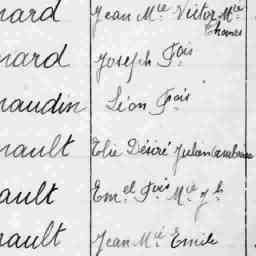 nard Jean Mie Victor Mie
Thomas
nard Joseph Fois
naudin Léon Fois
nault Elie Désiré Julien Ambroise
ault Emel Fois Mie Jh
nault Jean Mie Emile